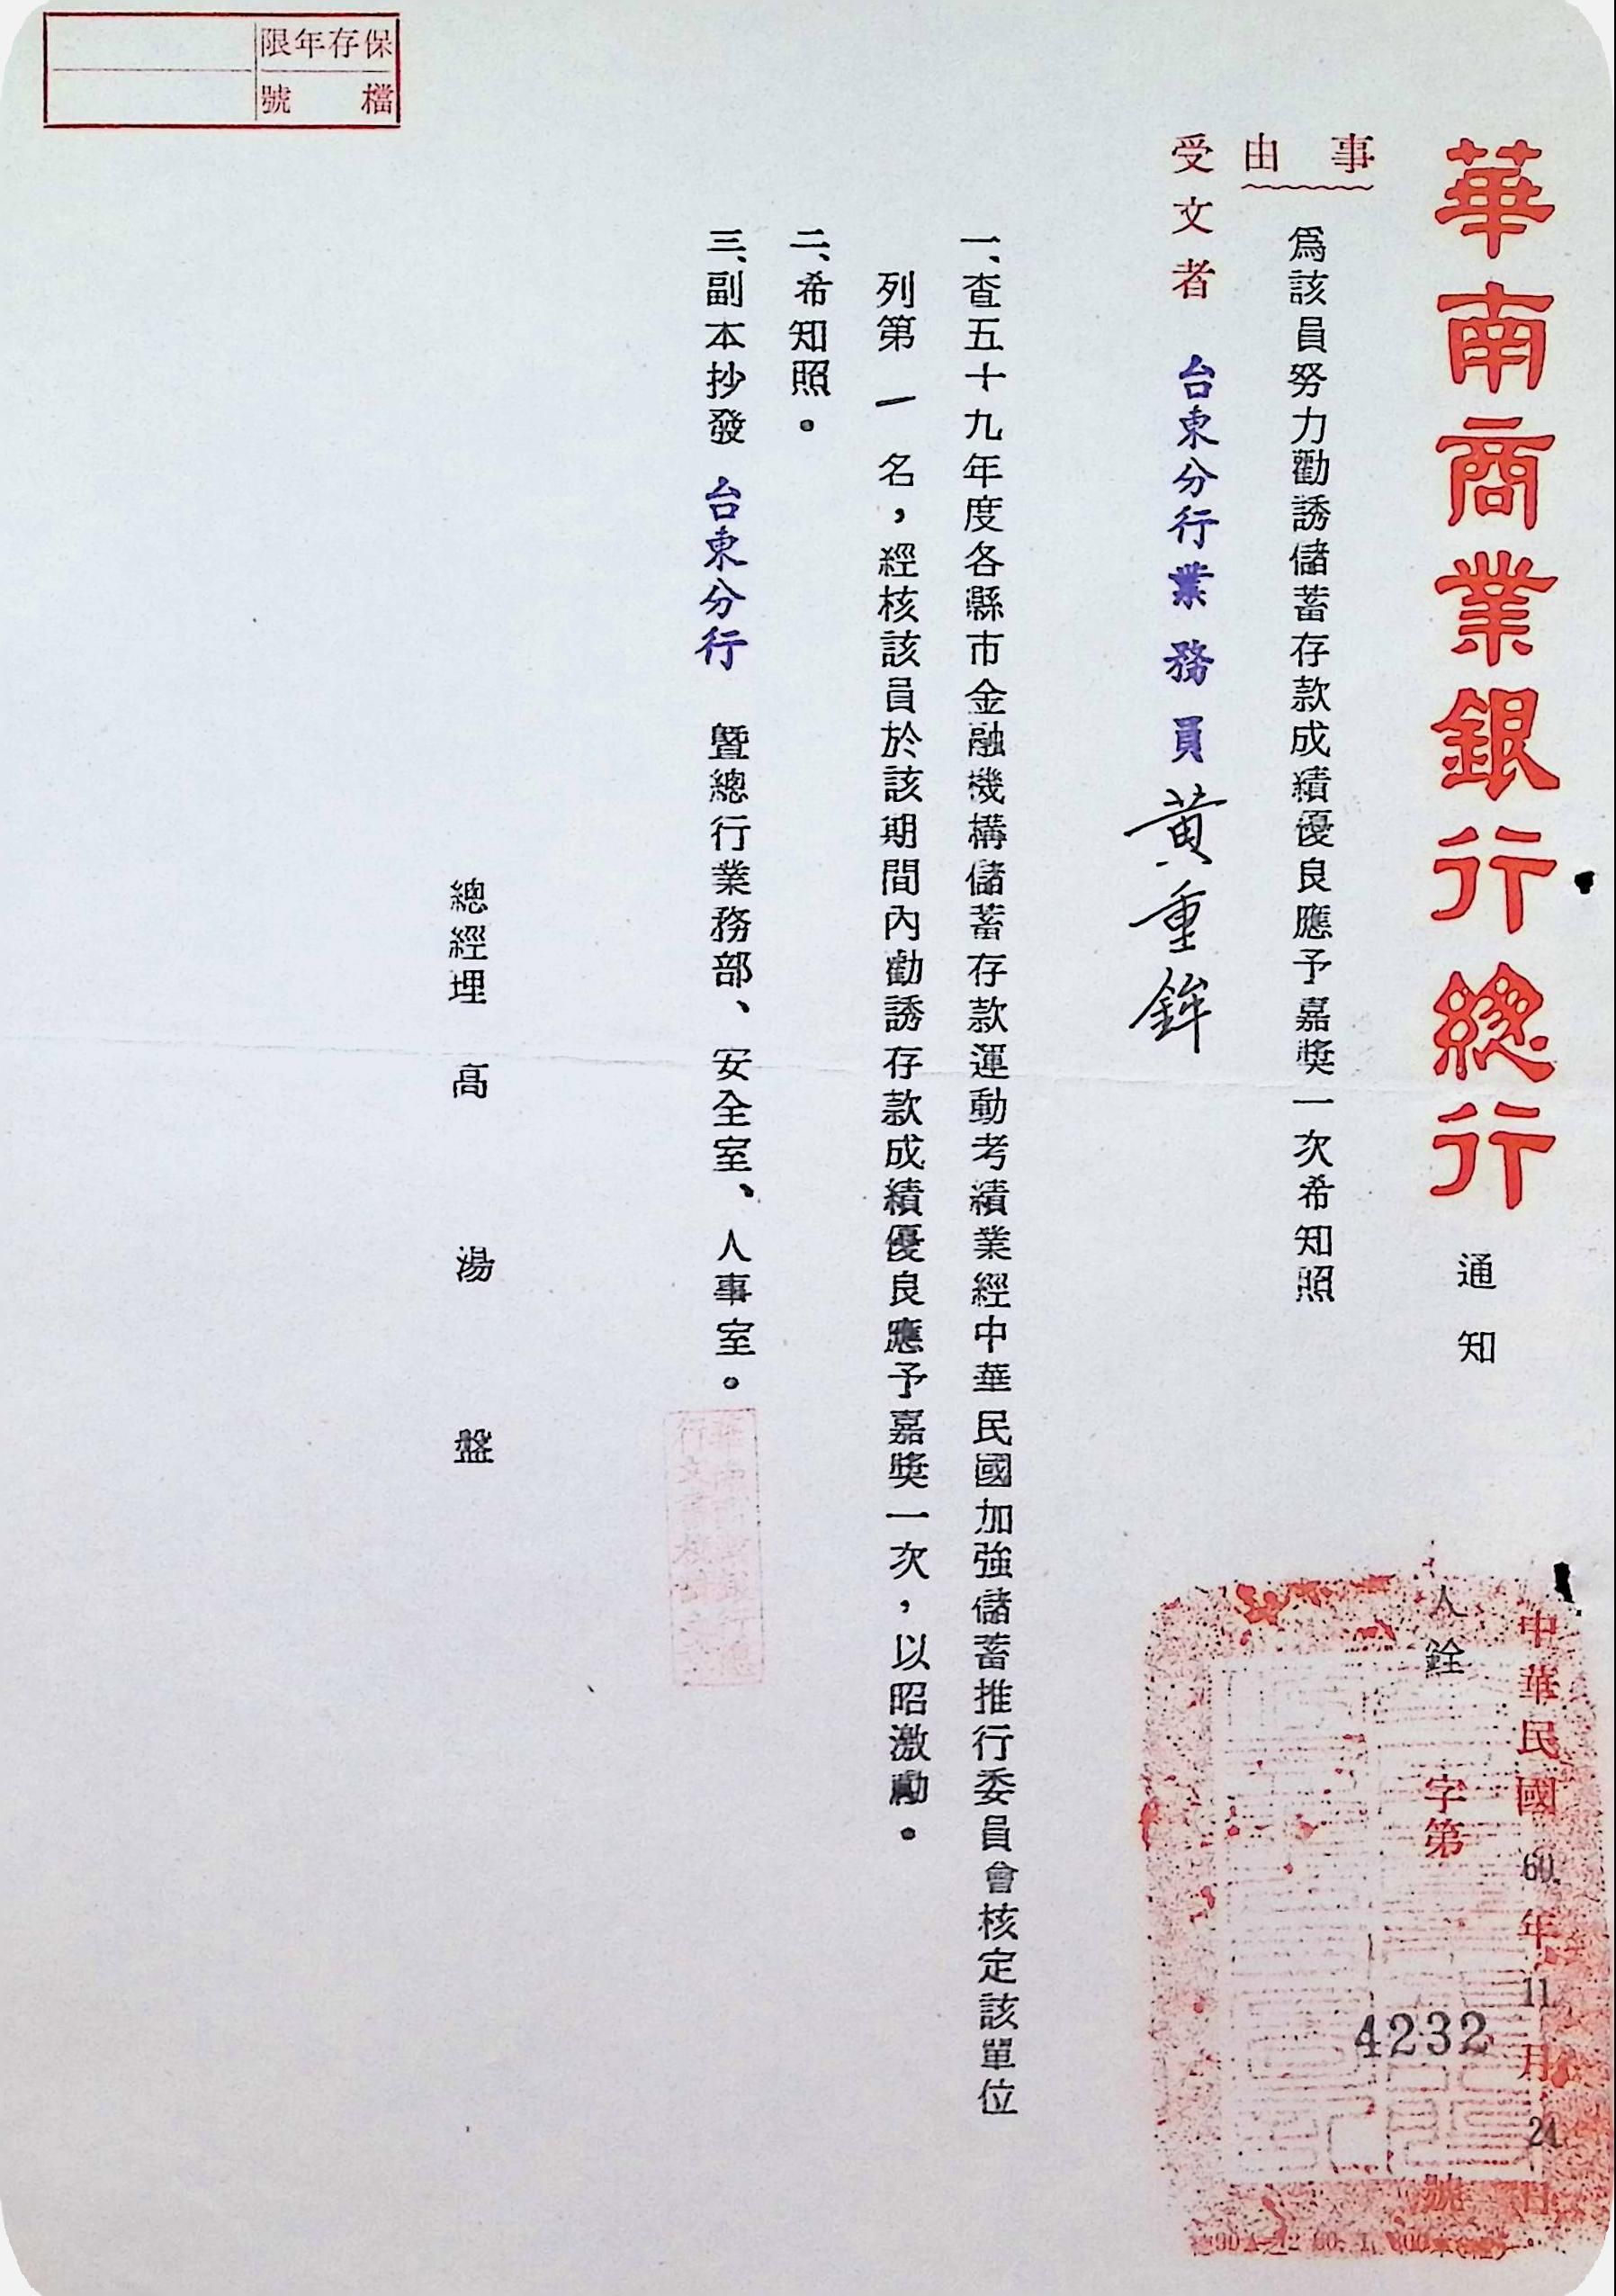 華南商業銀行總行 通知
中華民國60年11月24日
人銓字第4232號
事由
為該員努力勸誘儲蓄存款成績優良應予嘉獎一次希知照
受文者 台東分行業務員 黃重鉾
一、查五十九年度各縣市金融機構儲蓄存款運動考績業經中華民國加強儲蓄推行委員會核定該單位
列第一名,經核該員於該期間內勸誘存款成績優良應予嘉獎一次,以昭激勵。
二、希知照。
三、副本抄發 台東分行 暨總行業務部、安全室、人事室。
總經理 高湯盤
保存年限
檔號